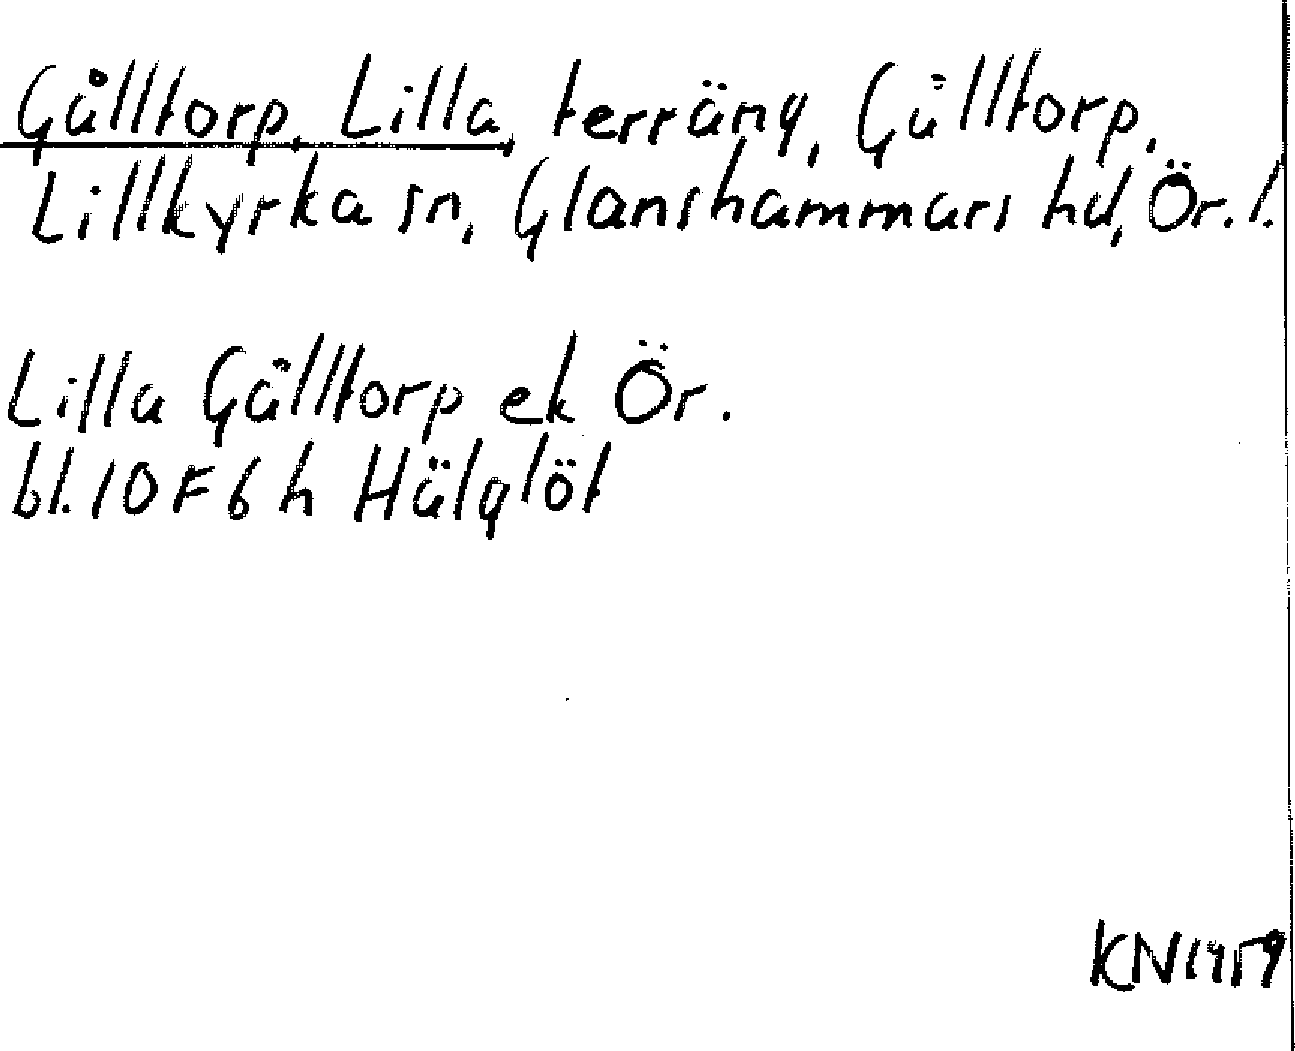 Gålltorp, Lilla, terräng, Gålltorp,
Lillkyrka sn, Glanshammars hd, Ör. l.
Lilla Gålltorp ek Ör.
bl. 10 F 6 h Hälglöt
KN 1959